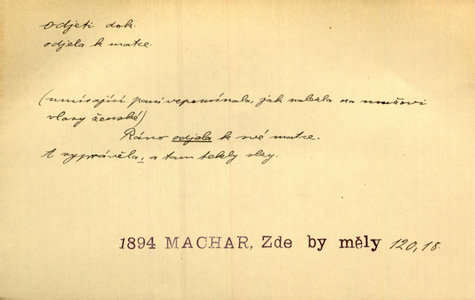 odjeti dok.
odjela k matce
(umírající paní vzpomínala, jak nalezla na mužovi
vlasy ženské)
Ráno odjela k své matce.
A vyprávěla, a tam tekly slzy.
1894 MACHAR, Zde by měly 120,18.